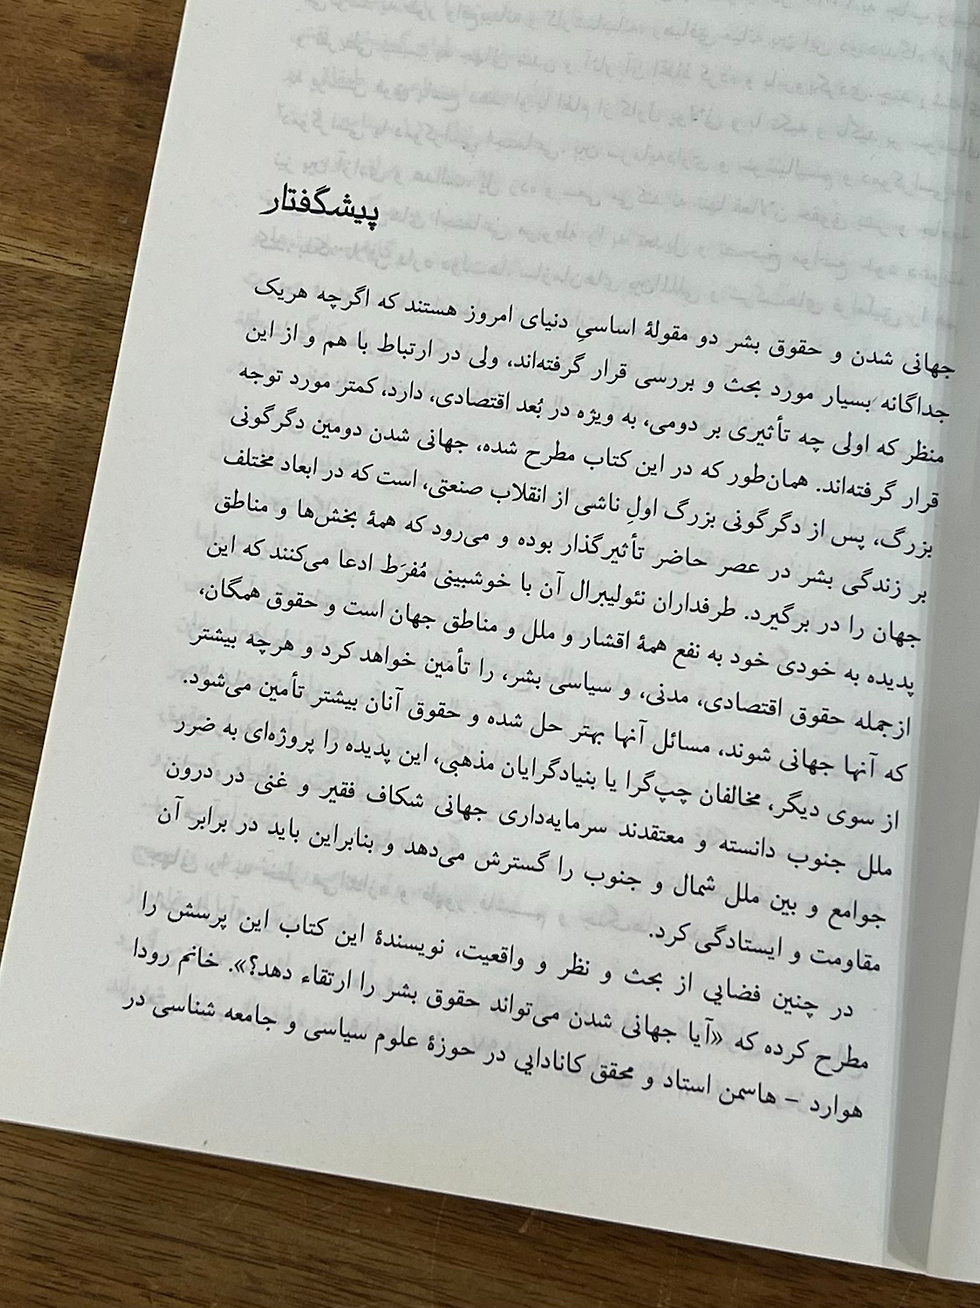 پیشگفتار
جهانی شدن و حقوق بشر دو مقولهٔ اساسیِ دنیای امروز هستند که اگرچه هریک
جداگانه بسیار مورد بحث و بررسی قرار گرفته‌اند، ولی در ارتباط با هم و از این
منظر که اولی چه تأثیری بر دومی، به ویژه در بُعد اقتصادی، دارد، کمتر مورد توجه
قرار گرفته‌اند. همان‌طور که در این کتاب مطرح شده، جهانی شدن دومین دگرگونی
بزرگ، پس از دگرگونی بزرگ اولِ ناشی از انقلاب صنعتی، است که در ابعاد مختلف
بر زندگی بشر در عصر حاضر تأثیرگذار بوده و می‌رود که همهٔ بخش‌ها و مناطق
جهان را در برگیرد. طرفداران نئولیبرال آن با خوشبینی مُفرَط ادعا می‌کنند که این
پدیده به خودی خود به نفع همهٔ اقشار و ملل و مناطق جهان است و حقوق همگان،
ازجمله حقوق اقتصادی، مدنی، و سیاسی بشر، را تأمین خواهد کرد و هرچه بیشتر
که آنها جهانی شوند، مسائل آنها بهتر حل شده و حقوق آنان بیشتر تأمین می‌شود.
از سوی دیگر، مخالفان چپ‌گرا یا بنیادگرایان مذهبی، این پدیده را پروژه‌ای به ضرر
ملل جنوب دانسته و معتقدند سرمایه‌داری جهانی شکاف فقیر و غنی در درون
جوامع و بین ملل شمال و جنوب را گسترش می‌دهد و بنابراین باید در برابر آن
مقاومت و ایستادگی کرد.
در چنین فضایی از بحث و نظر و واقعیت، نویسندهٔ این کتاب این پرسش را
مطرح کرده که «آیا جهانی شدن می‌تواند حقوق بشر را ارتقاء دهد؟». خانم رودا
هوارد – هاسمن استاد و محقق کانادایی در حوزهٔ علوم سیاسی و جامعه شناسی در